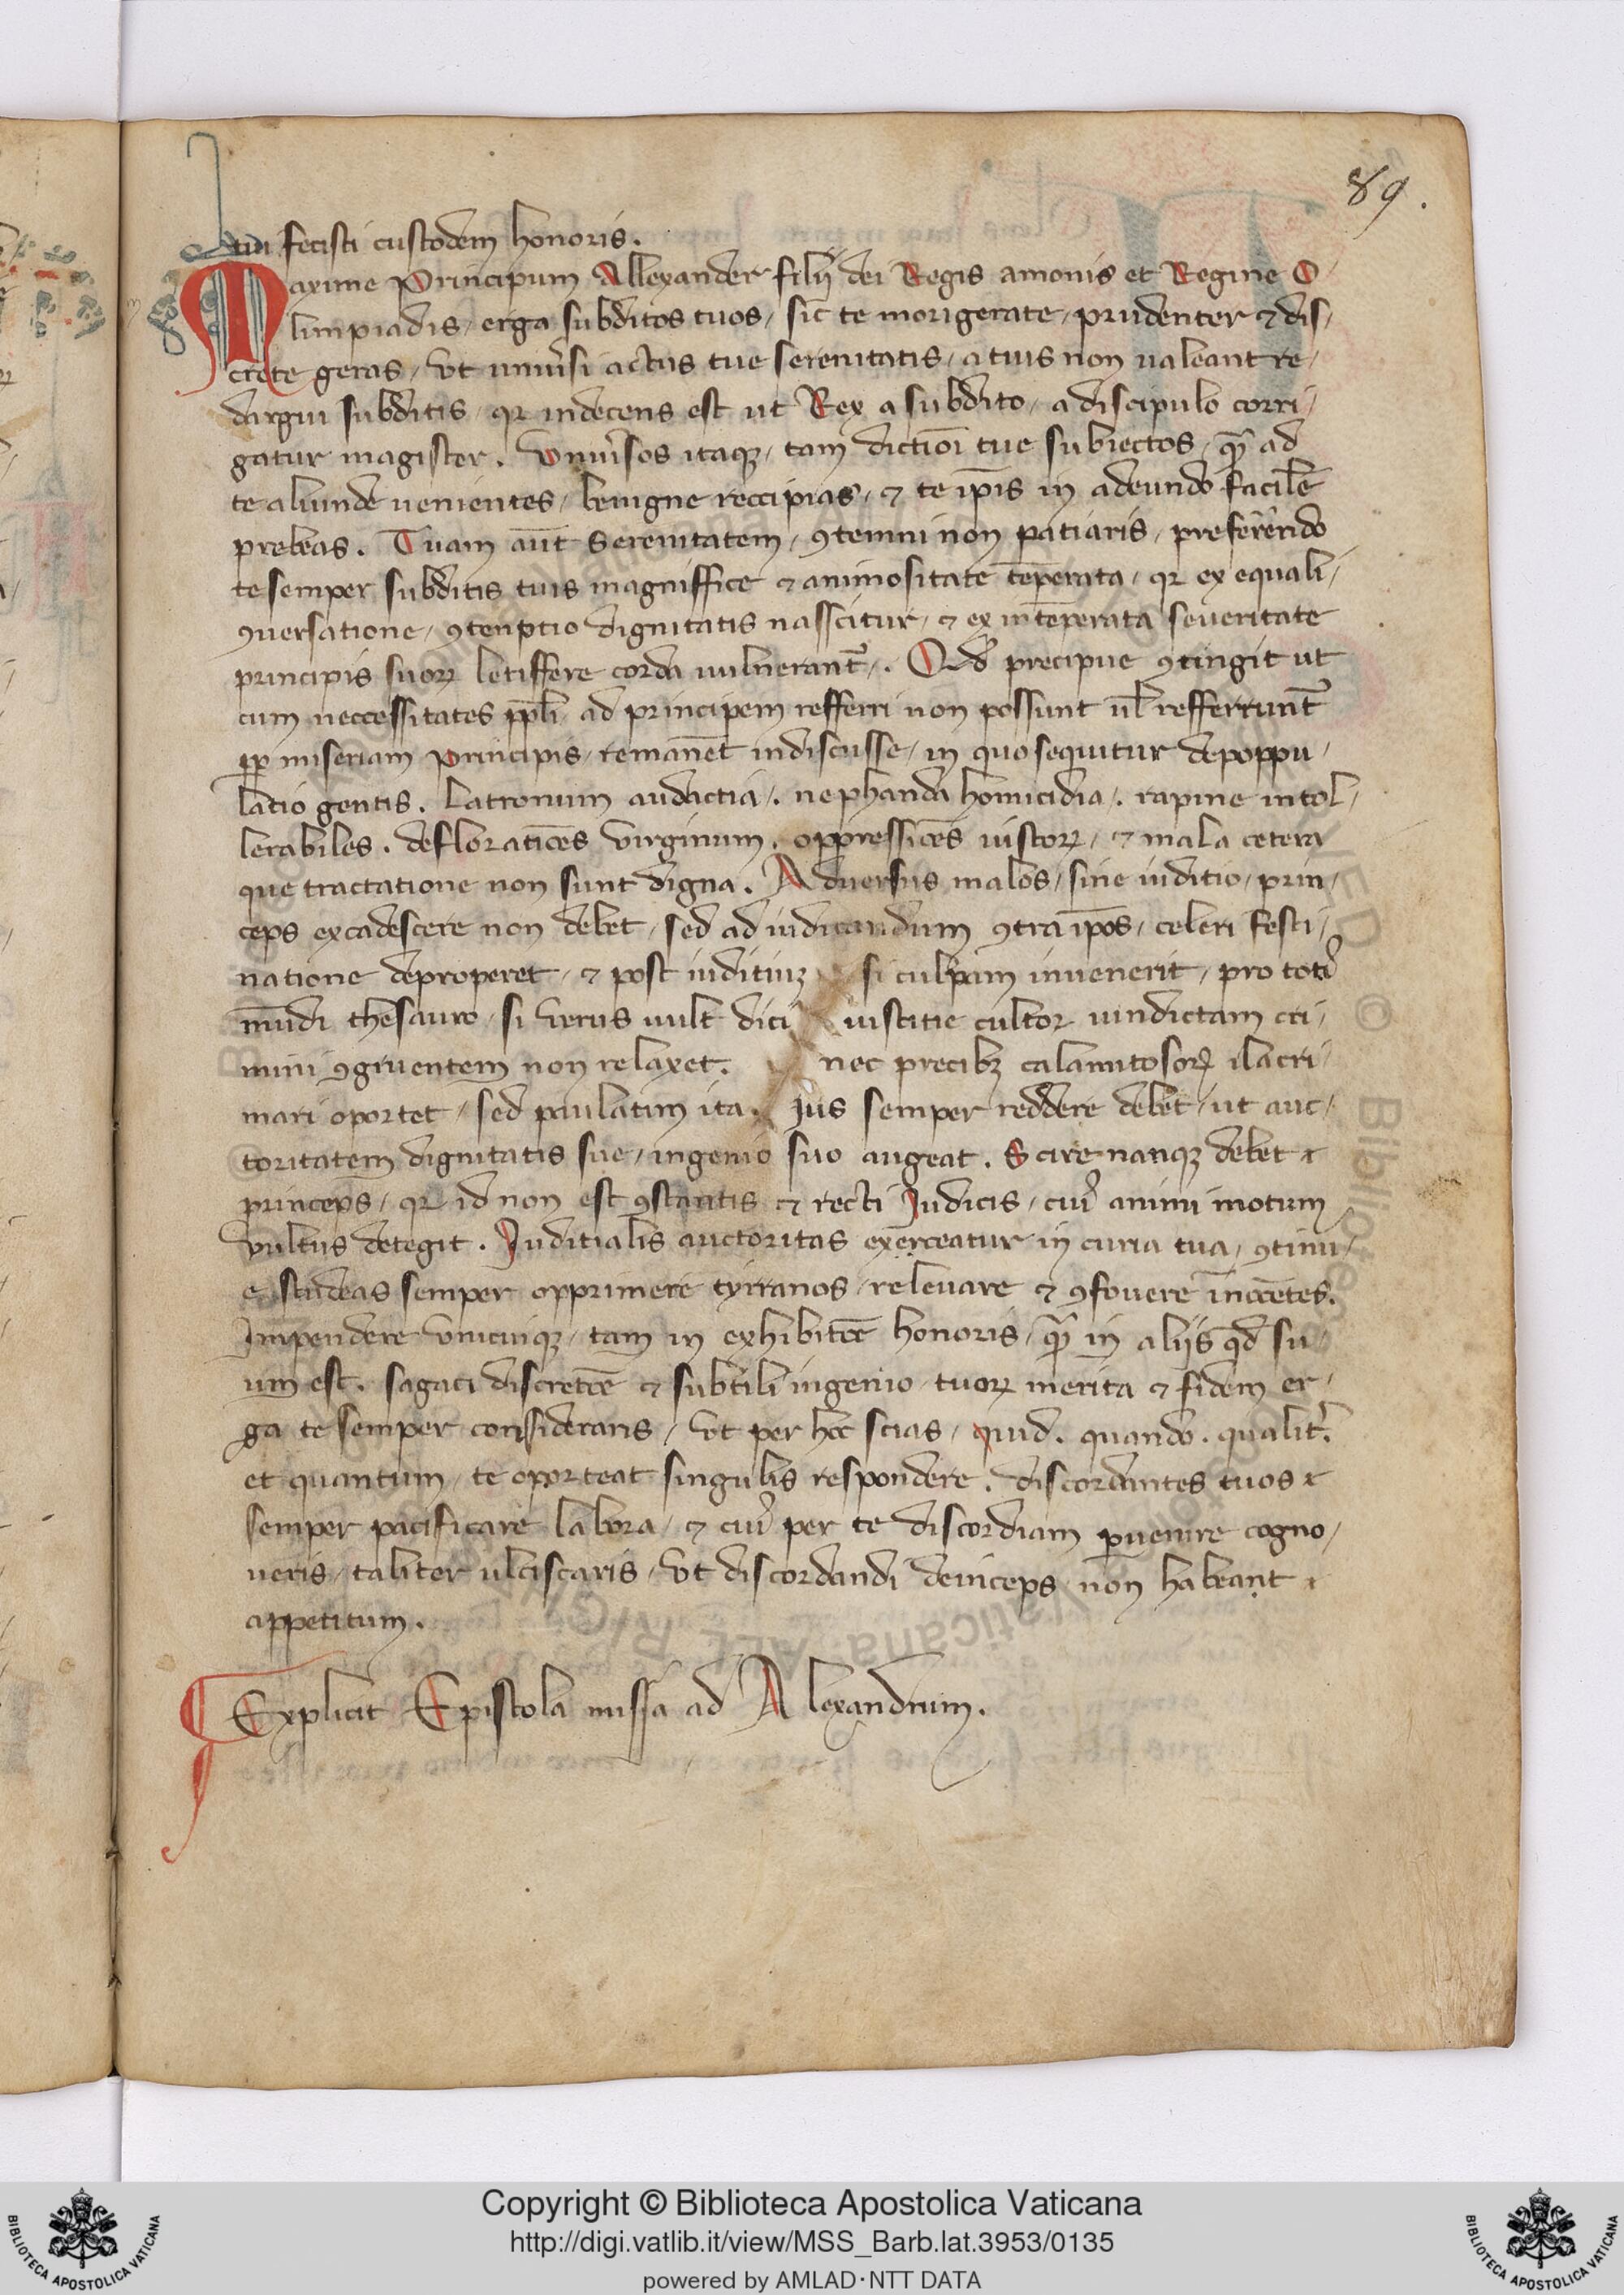 89.
tui fecisti custodem honoris.
Maxime Principum Allexander filij dei Regis amonis et Regine O
limpiadis / erga subditos tuos / sic te morigerate / prudenter ⁊ dis /
crete geras / vt uniu͛si actus tue serenitatis / a tuis non ualeant re /
dargui subditis / qꝛ indecens est ut Rex a subdito / a discipulo corri /
gatur magister. Vniu͛sos itaqꝫ / tam dictio͞i tue subiectos / qᷓ ad
te aliunde uenientes / benigne reccipias / ⁊ te ip͞is in adeundo facile͞
prebeas. Tuam au͞t serenitatem / ꝯtemni non patiaris / preferendo
te semper subditis tuis magniffice ⁊ animositate te͞perata / qꝛ ex equali /
ꝯuersatione / ꝯtenptio dignitatis nasscitur / ⁊ ex inte͞perata seueritate
principis suoꝝ letiffere corda uulnerant᷑ /. Qd͛ precipue ꝯtingit ut
cum neccessitates pp͞li ad principem refferri non possunt ul͛ refferrunt᷑
ꝓp͛ miseriam Principis / remane͞t indiscusse / in quo sequitur depoppu /
latio gentis. latronum audactia /. nephanda homicidia /. rapine intol /
lerabiles. defloratio͞es virginum. oppressio͞es iustoꝝ / ⁊ mala cetera
que tractatione non sunt digna. Aduersus malos / sine iuditio / prin /
ceps excadescere non debet / sed ad iudicandum ꝯtra ip͞os / celeri festi /
natione deproperet / ⁊ post iuditiuꝫ si culpam inuenerit / pro toti᷒
mu͞di thesauro / si verus uult dici iustitie cultor uindictam cri /
mini ꝯgruentem non relaxet. nec precibꝫ calamitosoꝝ ilacri /
mari oportet / sed paulatim ita. Jus semper reddere debet / ut auc /
toritatem dignitatis sue / ingenio suo augeat. Scire nanqꝫ debet
princeps / qꝛ id non est ꝯstantis ⁊ recti Judicis / cui᷒ animi motum
vultus detegit. Juditialis auctoritas exerceatur in curia tua / ꝯtinu /
e studeas semper opprimere tyrranos / releuare ⁊ ꝯfouere in͞oce͞tes.
Impendere vnicuiqꝫ / tam in exhibito͞e honoris / qᷓ in alijs qd͛ su
um est. sagaci discreto͞e ⁊ subtili ingenio / tuoꝝ merita ⁊ fidem er /
ga te semper consideraris / vt per hoc scias / quid. quando. qualit͛.
et quantum / te oporteat singulis respondere. discordantes tuos
semper pacificare labora / ⁊ cui᷒ per te discordiam ꝑuenire cogno /
ueris / taliter ulciscaris / vt discordandi deinceps non habeant
appetitum.
Explicit Epistola missa ad Alexandrum.
Copyright © Biblioteca Apostolica Vaticana
http://digi.vatlib.it/view/MSS_Barb.lat.3953/0135
powered by AMLAD·NTT DATA
BIBLIOTECA APOSTOLICA VATICANA
BIBLIOTECA APOSTOLICA VATICANA